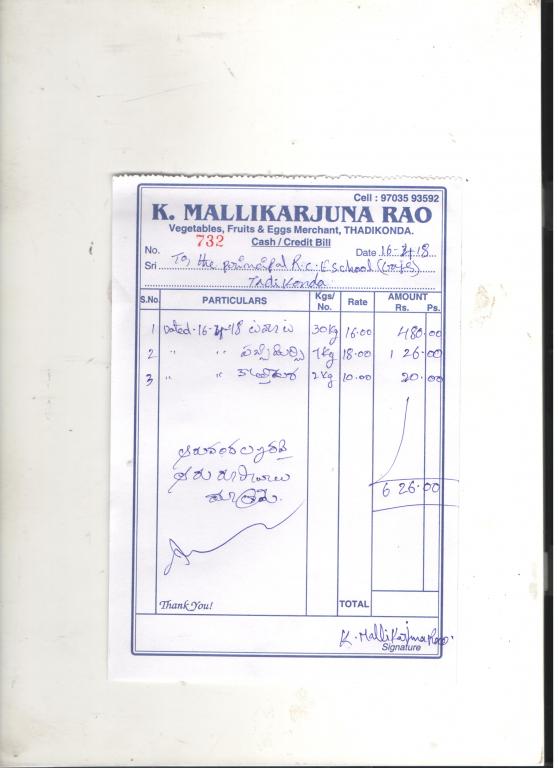 Cell : 97035 93592
K. MALLIKARJUNA RAO
Vegetables, Fruits & Eggs Merchant, THADIKONDA.
No. 732 Cash / Credit Bill Date 16-4-18
Sri To, the principal R.C.E School (Girls)
Tadikonda
S.No. PARTICULARS Kgs/No. Rate AMOUNT Rs. Ps.
1 Dated-16-4-18 30kg 16.00 480.00
2 " " పచ్చిమిర్చి 7kg 18.00 126.00
3 " " 2kg 10.00 20.00
ఆరువందల
ఆరు రూపాయలు
మాత్రమే.
626.00
Thank You! TOTAL
K. Mallikarjuna Rao.
Signature